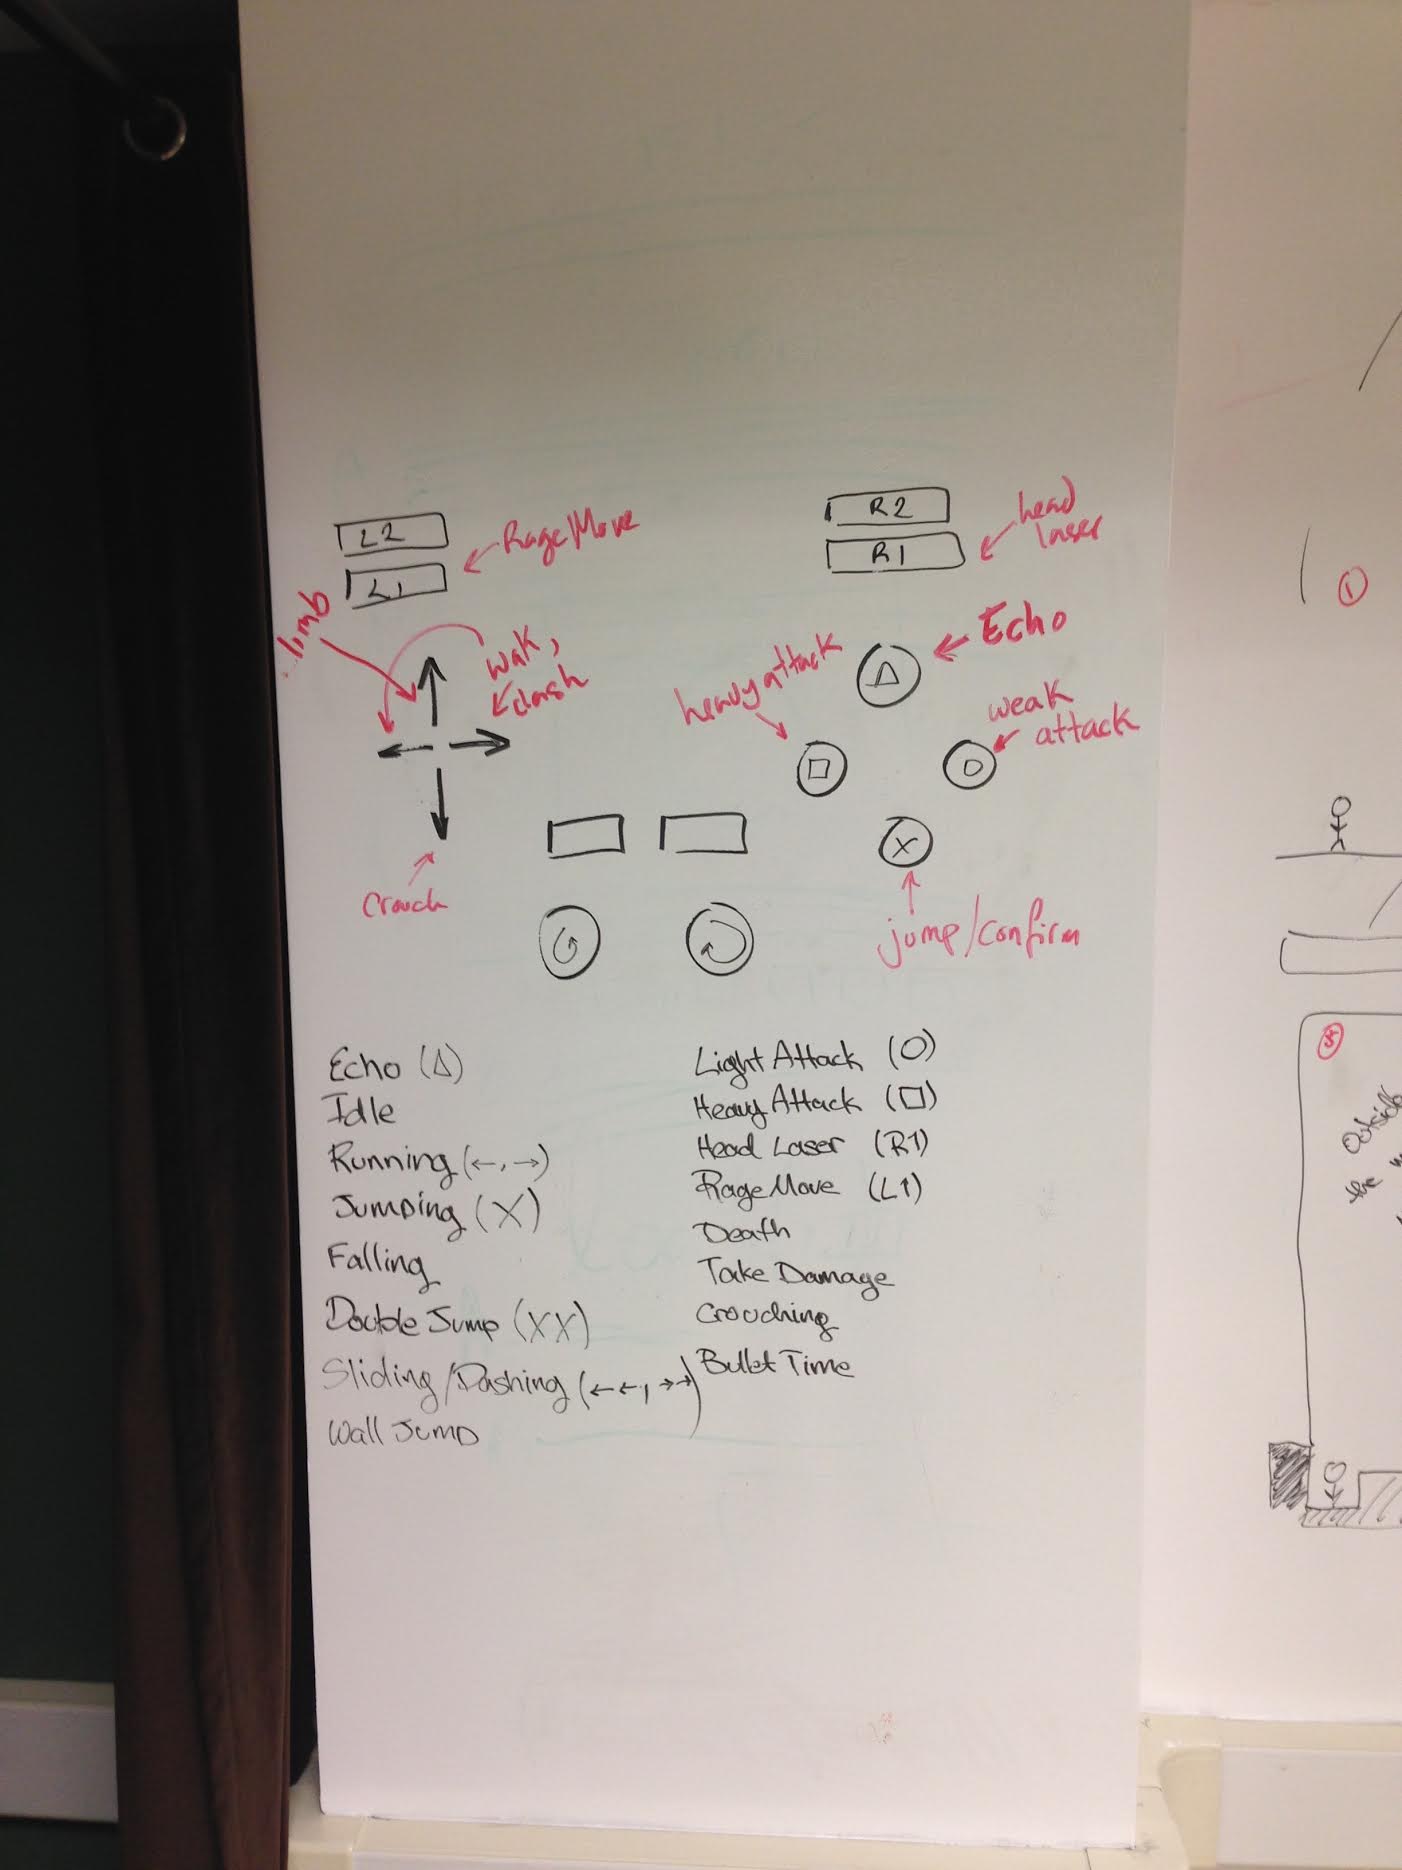 L2
L1
Rage/Move
R2
R1
head
laser
wak,
dash
heavy attack
Echo
weak
attack
Crouch
X
jump/confirm
Echo (Δ)
Idle
Running (←, →)
Jumping (X)
Falling
Double Jump (XX)
Sliding/Dashing (←←, →→)
Wall Jump
Light Attack (○)
Heavy Attack (□)
Head Laser (R1)
Rage Move (L1)
Death
Take Damage
Crouching
Bullet Time
1
Outside
the